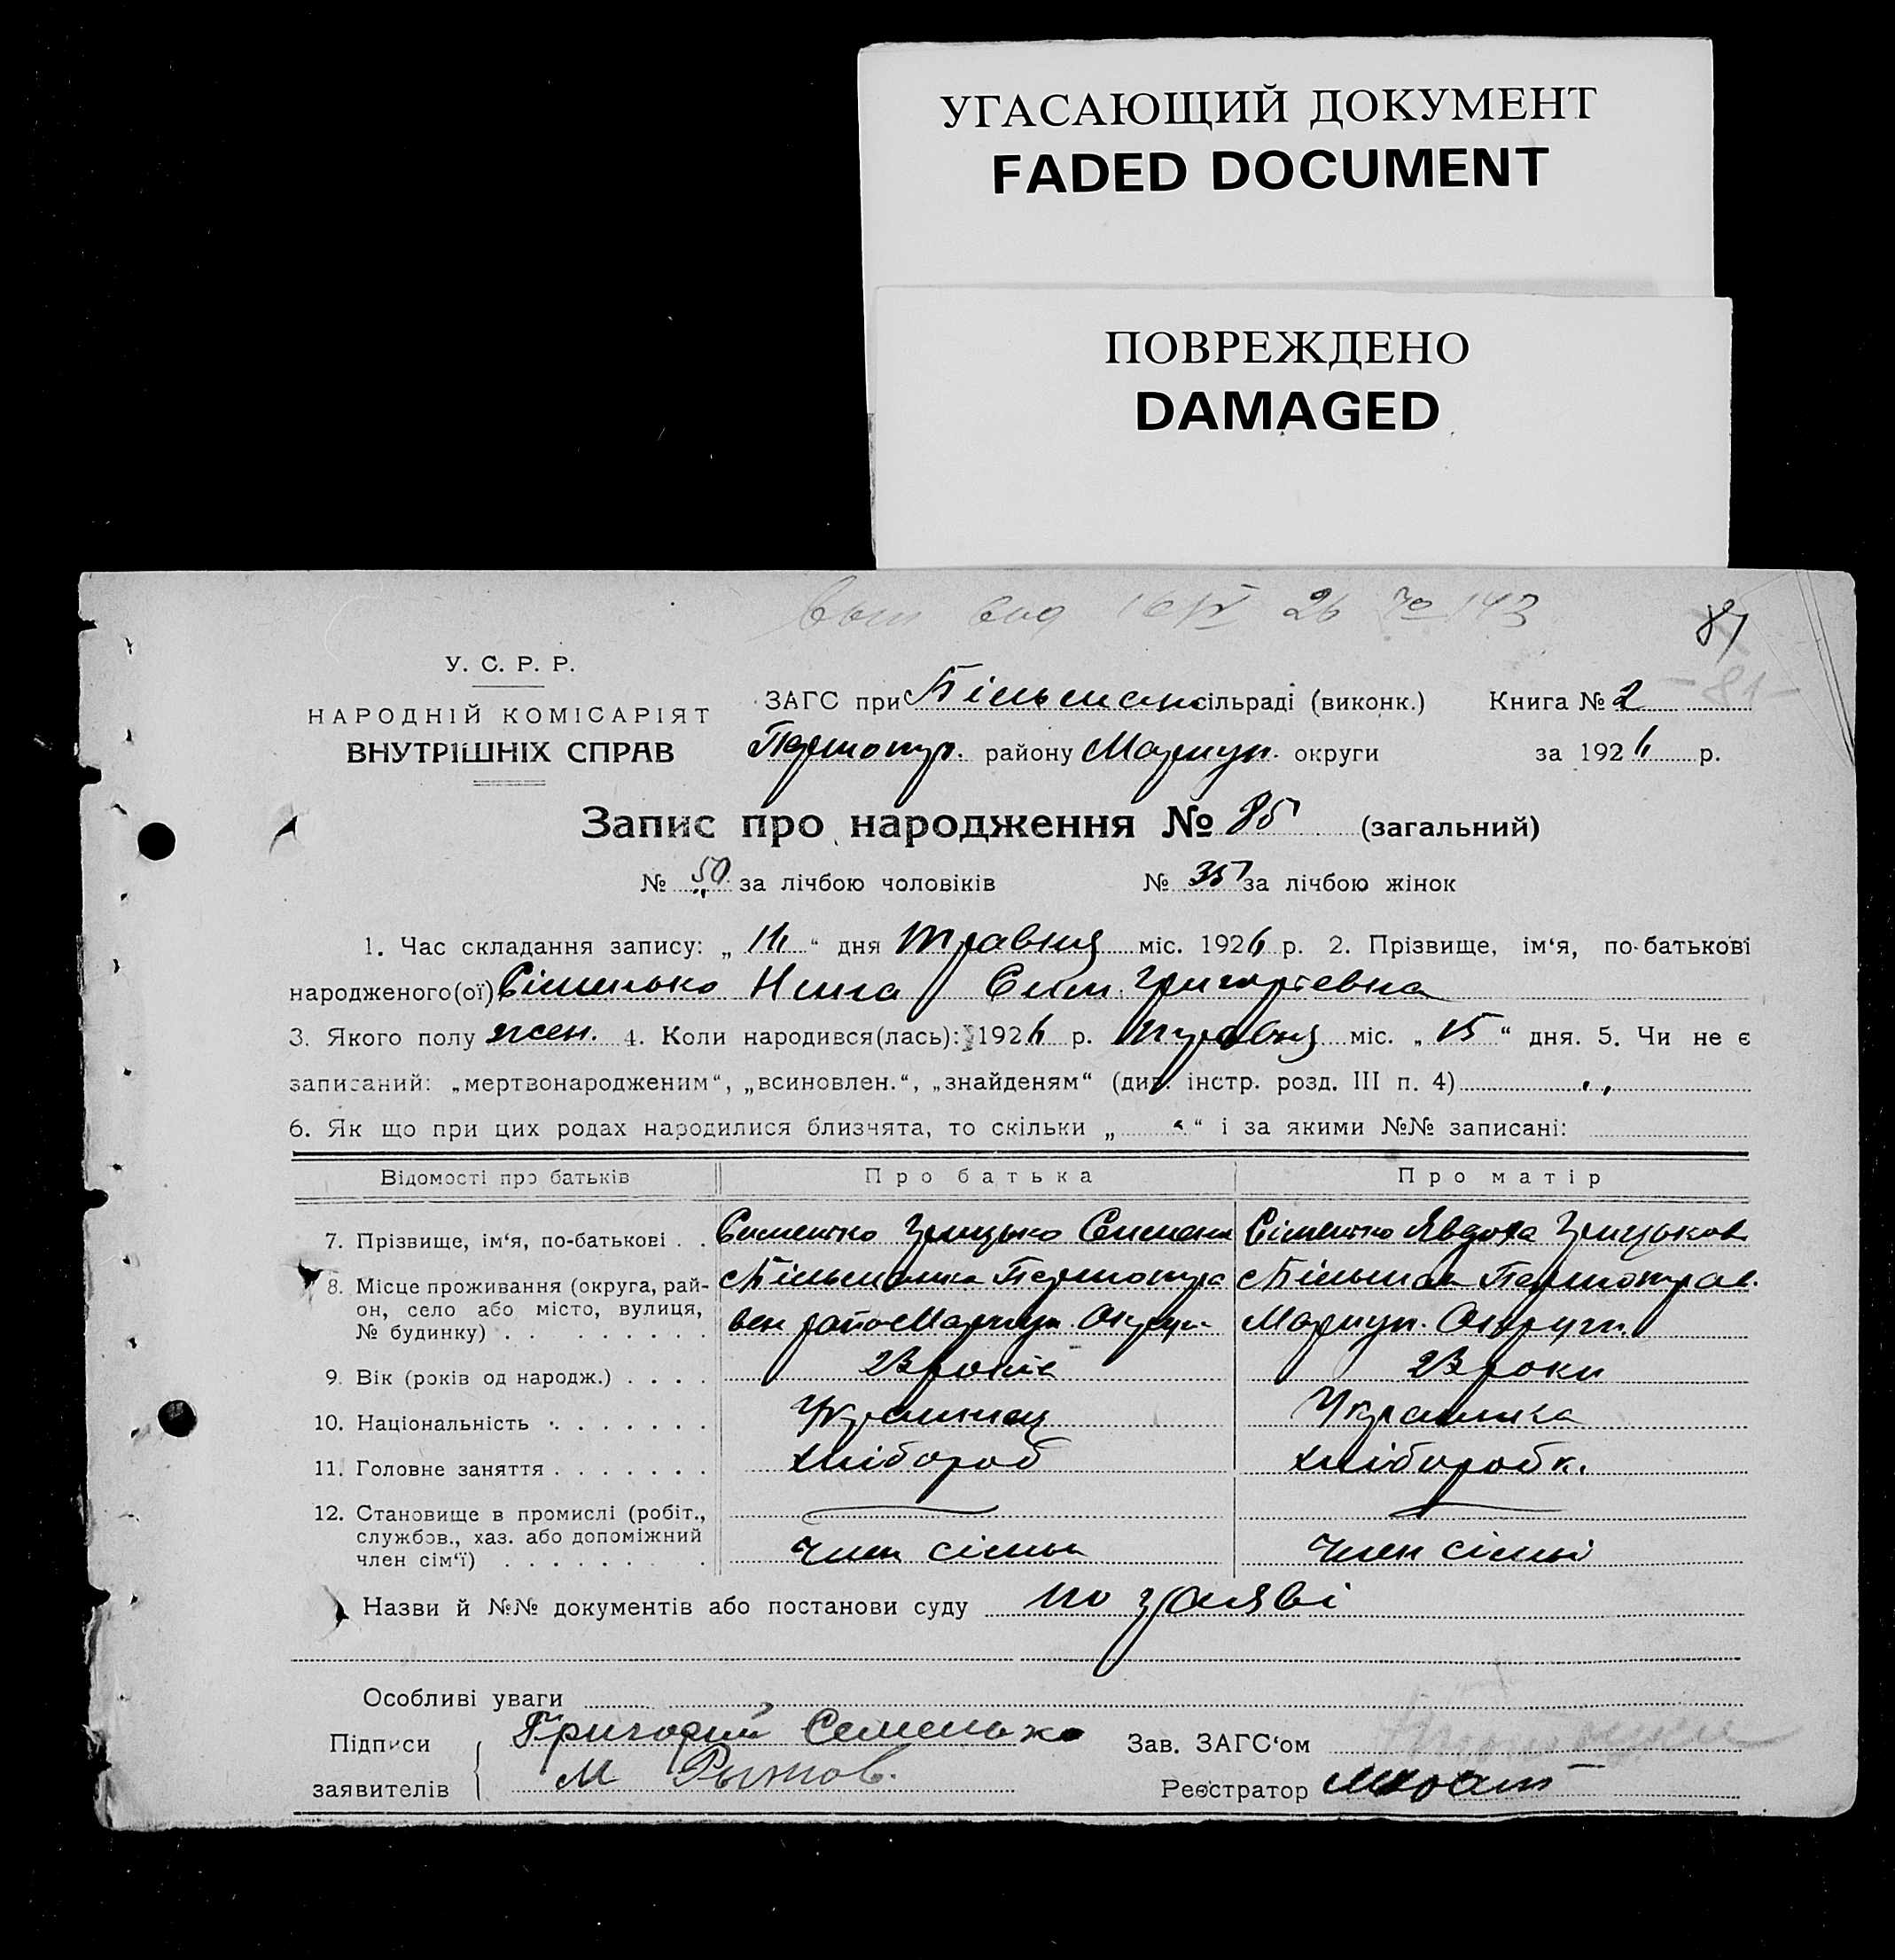 УГАСАЮЩИЙ ДОКУМЕНТ
FADED DOCUMENT
ПОВРЕЖДЕНО
DAMAGED
26 № 143
81
У. С. Р. Р.
НАРОДНІЙ КОМІСАРІЯТ
ВНУТРІШНІХ СПРАВ
ЗАГС при сільраді (виконк.) Книга № 2 -81-
району Мариуп. округи за 1926 р.
Запис про народження № 85 (загальний)
№ 50 за лічбою чоловіків № 35 за лічбою жінок
1. Час складання запису: „ “ дня Травня міс. 1926 р. 2. Прізвище, ім‘я, по-батькові
народженого(ої) Сіменько Нина Григорієвна
3. Якого полу жен. 4. Коли народився(лась): 1926 р. Травня міс. „ 15 “ дня. 5. Чи не є
записаний: „мертвонародженим“, „всиновлен.“, „знайденям“ (див. інстр. розд. III п. 4)
6. Як що при цих родах народилися близнята, то скільки „ “ і за якими №№ записані:
Відомості про батьків Про батька Про матір
7. Прізвище, ім‘я, по-батькові . . Грицько Явдоха Грицьков
8. Місце проживання (округа, рай-
он, село або місто, вулиця,
№ будинку) Мариуп. Округи Мариуп. Округи
9. Вік (років од народж.) . . . . 23 років 23 роки
10. Національність Українец Українка
11. Головне заняття хлібороб хліборобк.
12. Становище в промислі (робіт.,
службов., хаз. або допоміжний
член сім‘ї) член сімьи член сімьі
Назви й №№ документів або постанови суду по заяві
Особливі уваги
Підписи Григорий Семенько Зав. ЗАГС‘ом
заявителів М Рыжов. Реєстратор